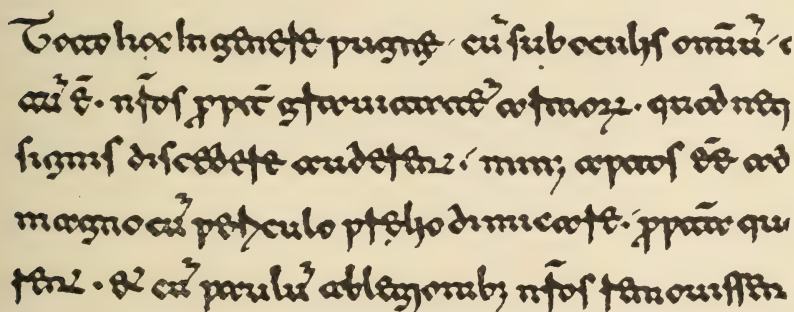 Toto hoc In genere pugne · cū sub oculis omniū ·
tū ē · nr̄os ꝓpt̄ gravitatē armoꝝ · quod neq
signis discedere auderent · minꝰ aptos ēē ad
magno cū periculo prelio dimicare · ꝓptea qu
rent · et cū paulū ablegionibꝫ nr̄os removissen